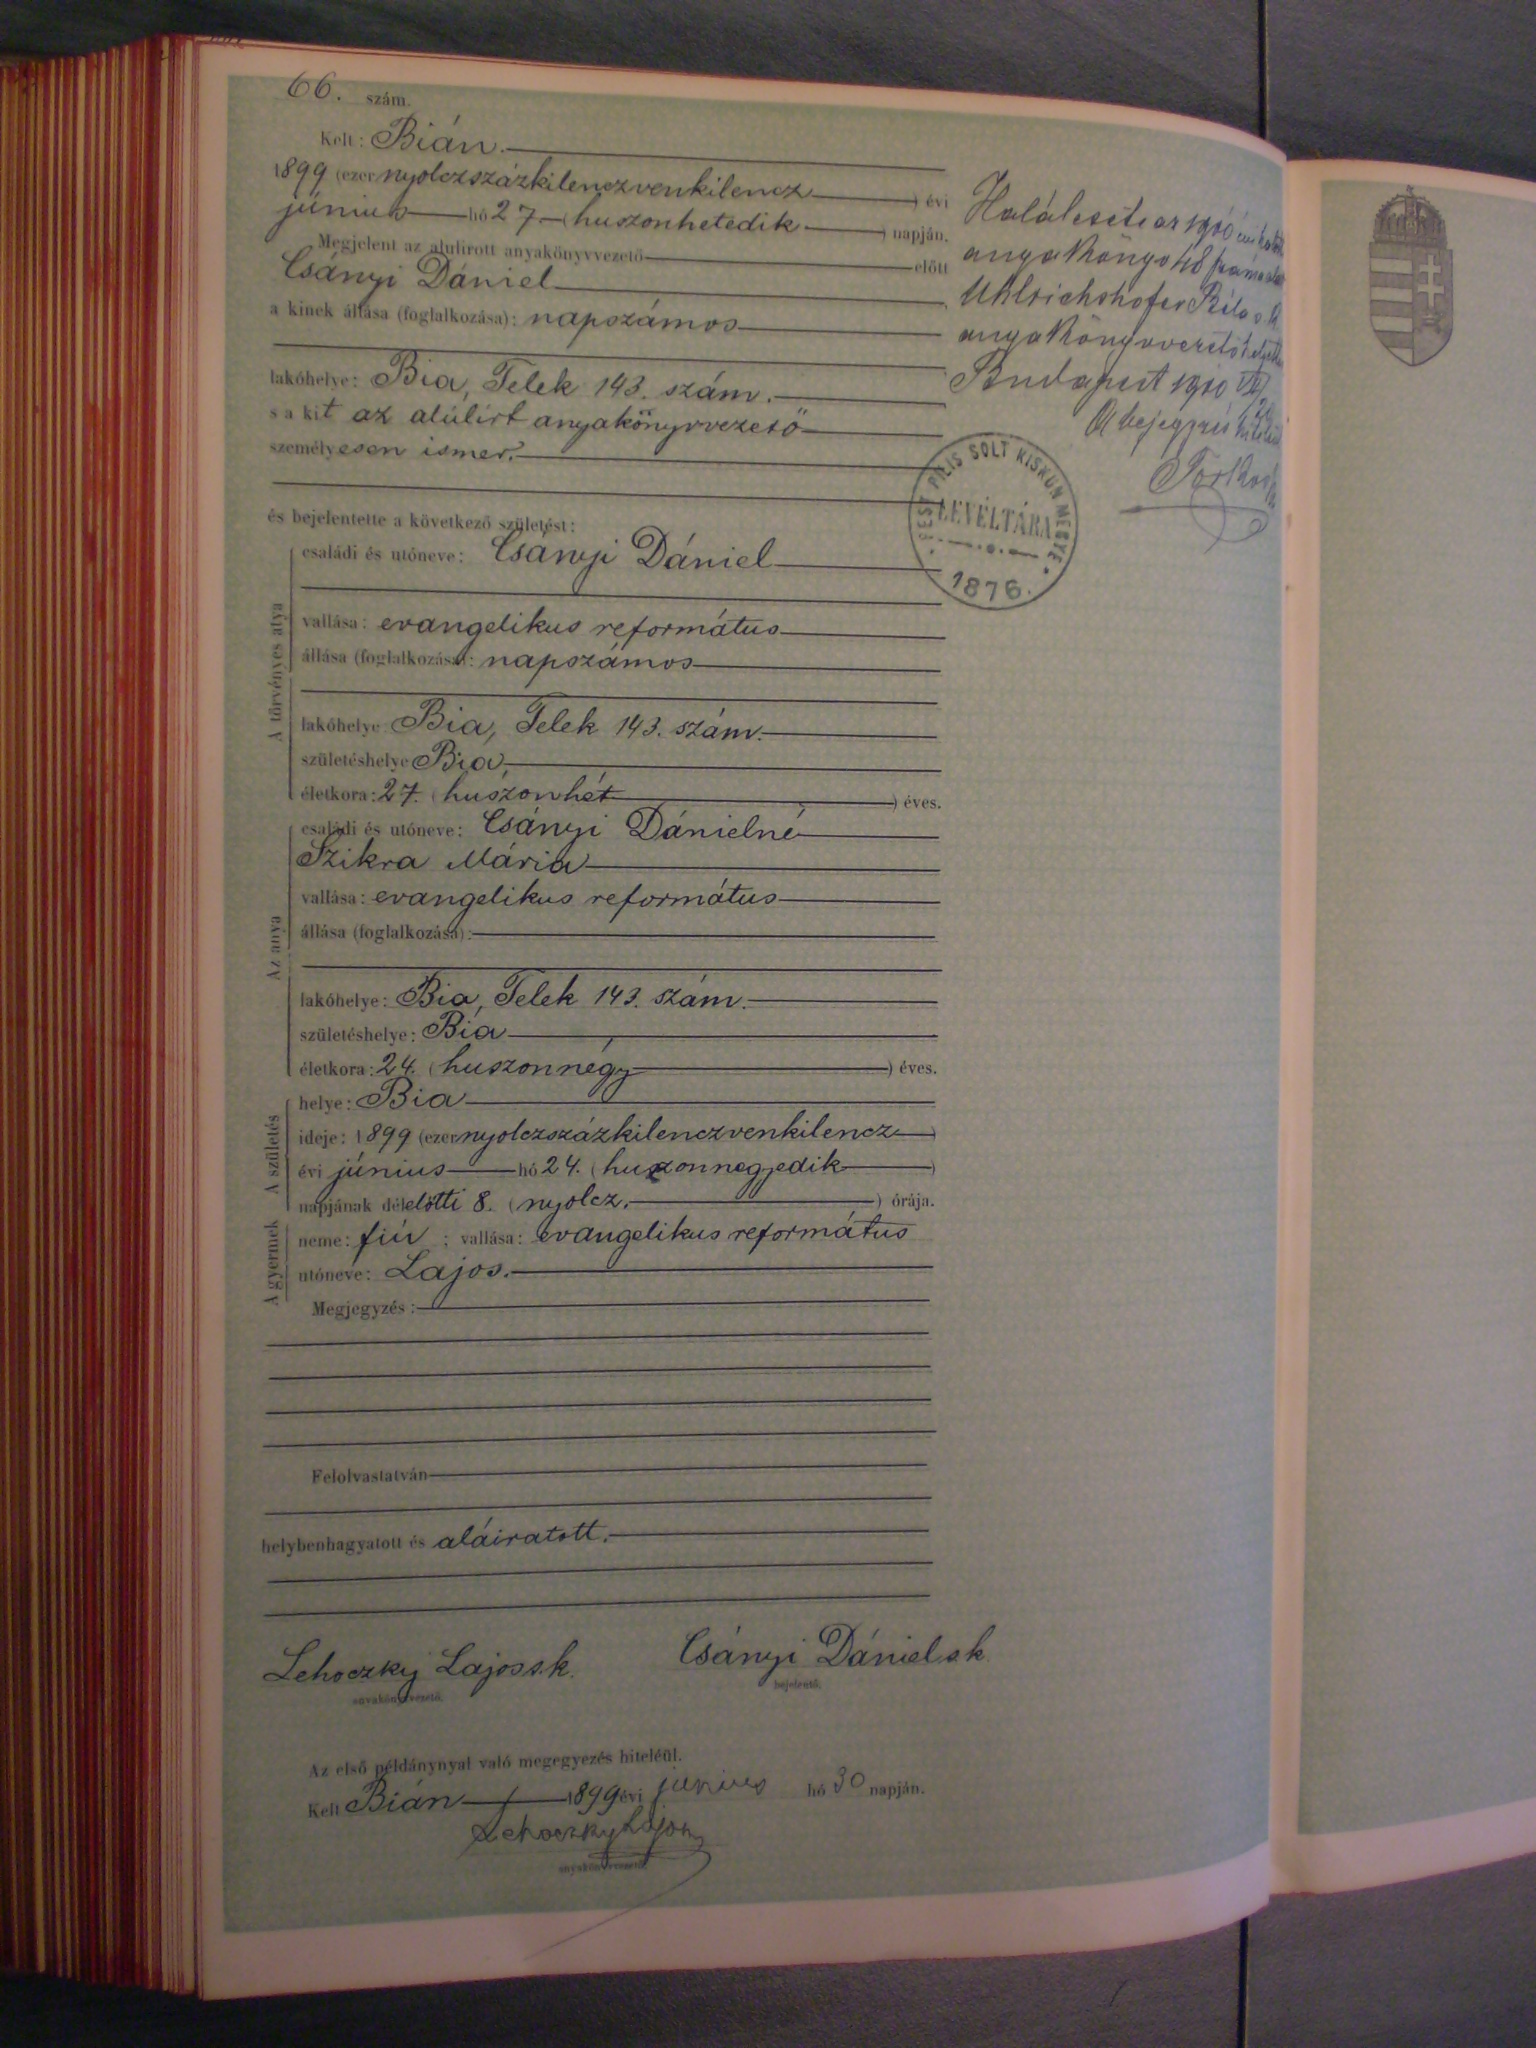 66. szám.
Kelt: Bián.
1899 (ezernyolczszázkilenczvenkilencz) évi
június hó 27 (huszonhetedik) napján.
Megjelent az alulirott anyakönyvvezető előtt
Csányi Dániel
a kinek állása (foglalkozása): napszámos
lakóhelye: Bia, Telek 143. szám.
s a kit az alúlírt anyakönyvvezető
személyesen ismer.
és bejelentette a következő születést:
A törvényes atya
családi és utóneve: Csányi Dániel
vallása: evangelikus református
állása (foglalkozása): napszámos
lakóhelye Bia, Telek 143. szám.
születéshelye Bia,
életkora: 27. (huszonhét) éves.
Az anya
családi és utóneve: Csányi Dánielné
Szikra Mária
vallása: evangelikus református
állása (foglalkozása):
lakóhelye: Bia, Telek 143. szám.
születéshelye: Bia
életkora: 24. (huszonnégy) éves.
A születés
helye: Bia
ideje: 1899 (ezernyolczszázkilenczvenkilencz)
évi június hó 24. (huszonnegyedik)
napjának délelőtti 8. (nyolcz.) órája.
A gyermek
neme: fiú ; vallása: evangelikus református
utóneve: Lajos.
Megjegyzés:
Felolvastatván
helybenhagyatott és aláiratott.
Lehoczky Lajos s.k. Csányi Dániel s.k.
anyakönyvvezető. bejelentő.
Az első példánynyal való megegyezés hiteléül.
Kelt Bián 1899 évi június hó 30 napján.
Lehoczky Lajos
anyakönyvvezető.
Halálesete az 1910
anyakönyv 48 szám
Uhlrichshofer Béla s.k.
anyakönyvvezető
Budapest 1910
A bejegyzés
PEST PILIS SOLT KISKUN MEGYE
LEVÉLTÁRA
1876.